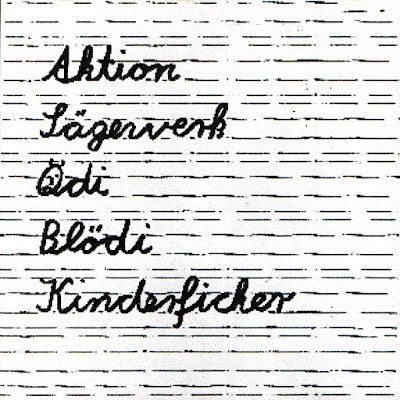 Aktion
Sägewerk
Ödi
Blödi
Kinderficker